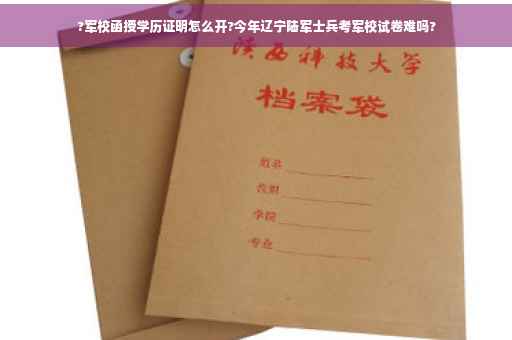 ?军校函授学历证明怎么开?今年辽宁陆军士兵考军校试卷难吗?
陕西科技大学
档案袋
姓名
学院
专业